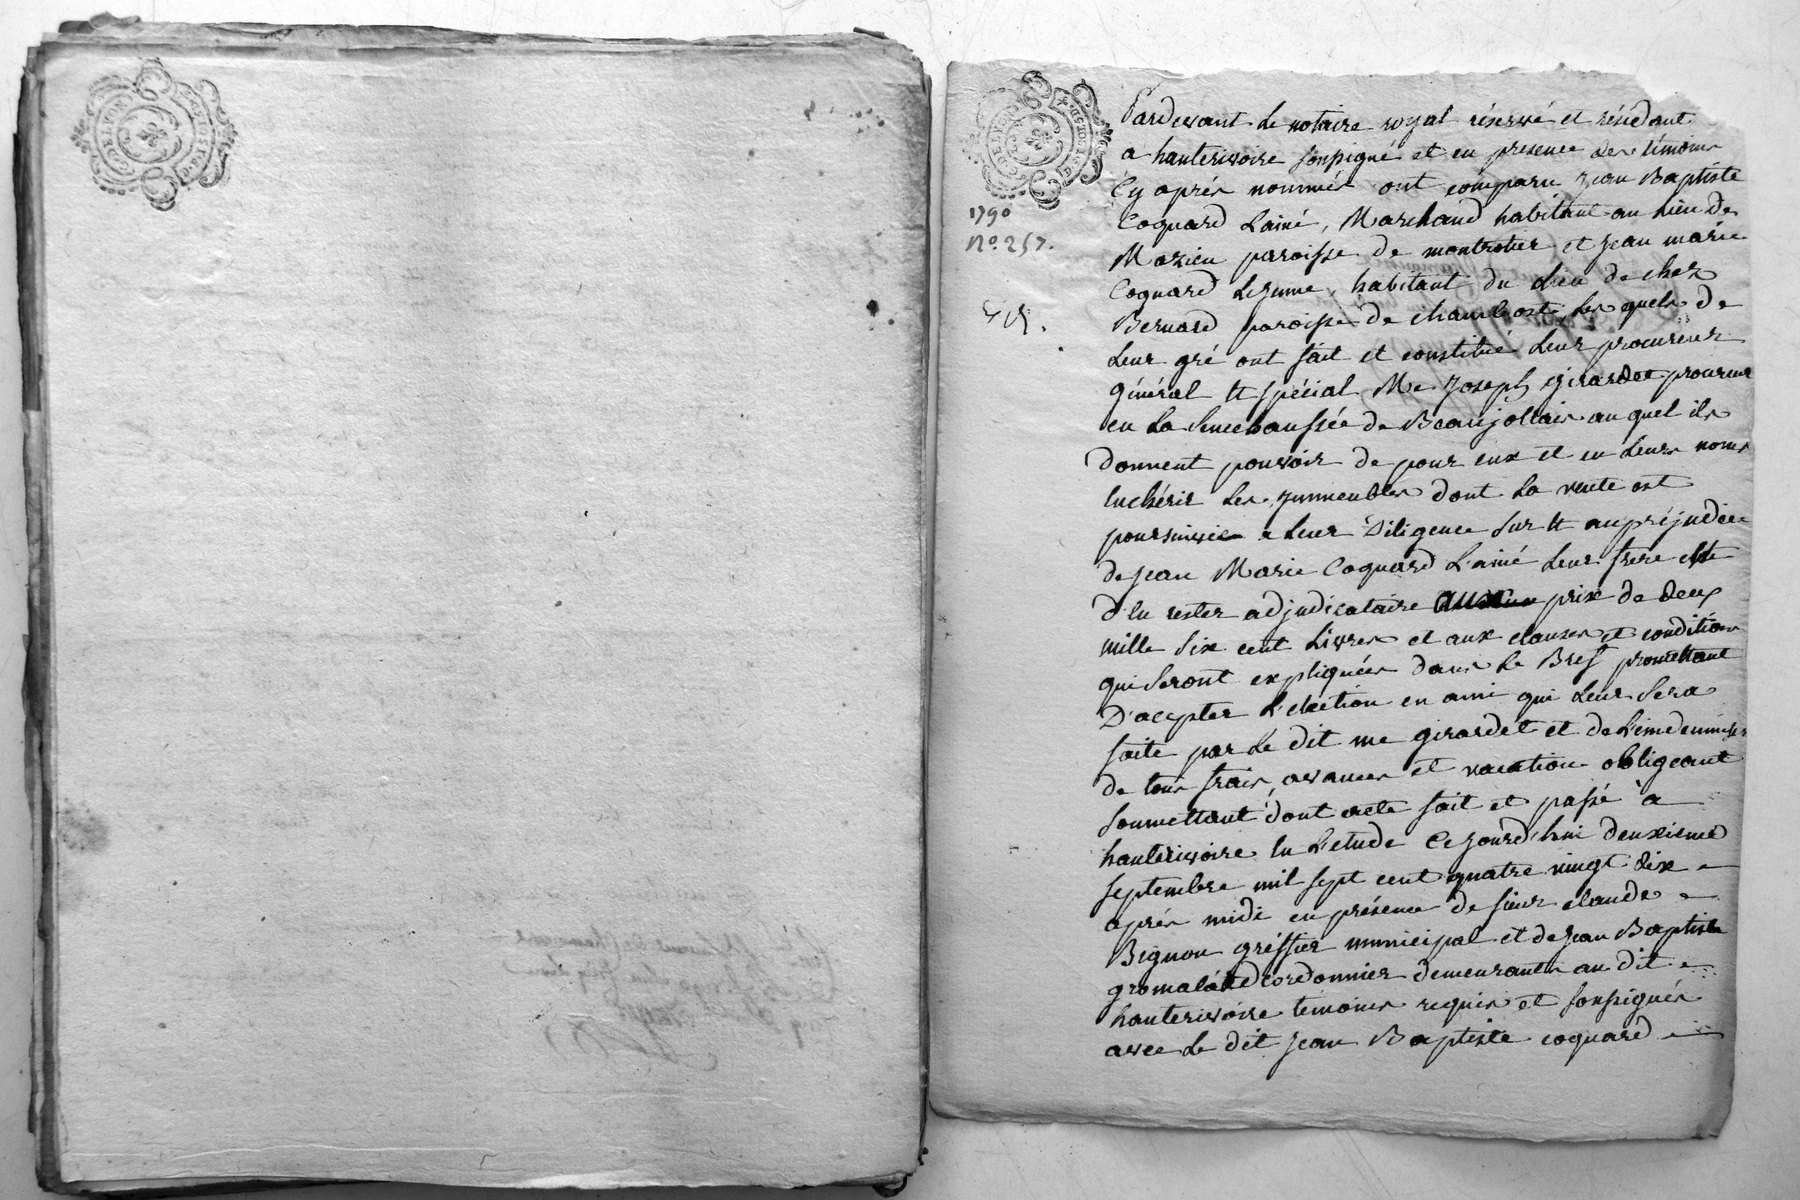 1790
No. 257.
Pardevant Le notaire royal réservé et résidant
a hauterivoire soussigné et en présence des témoins
Cy après nommés ont comparu Jean Baptiste
Coquard L'ainé, Marchand habitant au Lieu de
Mazieu paroisse de montrotier et Jean marie
Coquard Lejeune, habitant du Lieu de chez
Bernard paroisse de chambost, Les quels de
Leur gré ont fait et constitué Leur procureur
général et spécial Me Joseph girardet procureur
en La Senechaussée de Beaujollais au quel ils
donnent pouvoir de pour eux et en Leurs noms
enchérir Les immeubles dont La vente est
poursuivie a Leur Diligence sur et au préjudice
de Jean Marie Coquard L'ainé Leur frere
d'en rester adjudicataire prix de deux
mille six cent Livres et aux clauses et conditions
qui seront expliquées dans Le Bref promettant
D'acepter L'election en ami qui Leur sera
faite par Le dit me girardet et de L'indemniser
de tous frais, avances et vacation obligeant
soumettant dont acte fait et passé à
hauterivoire en L'etude Ce jourd'hui deuxieme
septembre mil sept cent quatre vingt dix
après midi en présence de sieur claude
Bignon gréffier municipal et de Jean Baptiste
cordonnier demeurants au dit
hauterivoire témoins requis et soussignés
avec Le dit Jean Baptiste coquard